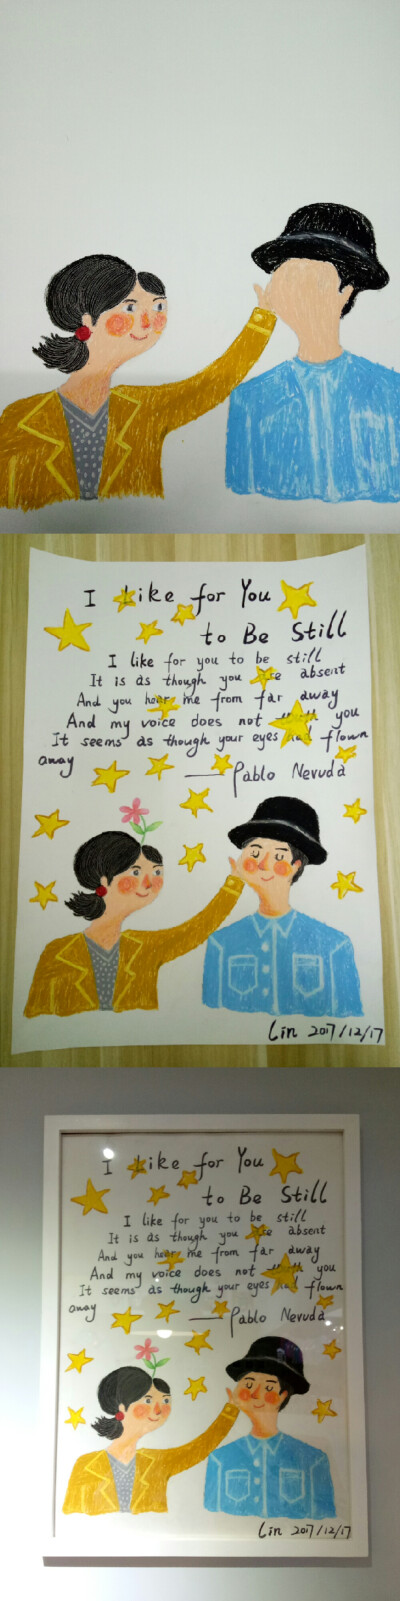 I Like for You
to Be Still
I like for you to be still
It is as though you are absent
And you hear me from far away
And my voice does not you
It seems as though your eyes had flown
away
— Pablo Neruda
Lin 2017/12/17
I Like for You
to Be Still
I like for you to be still
It is as though you are absent
And you hear me from far away
And my voice does not you
It seems as though your eyes had flown
away
— Pablo Neruda
Lin 2017/12/17